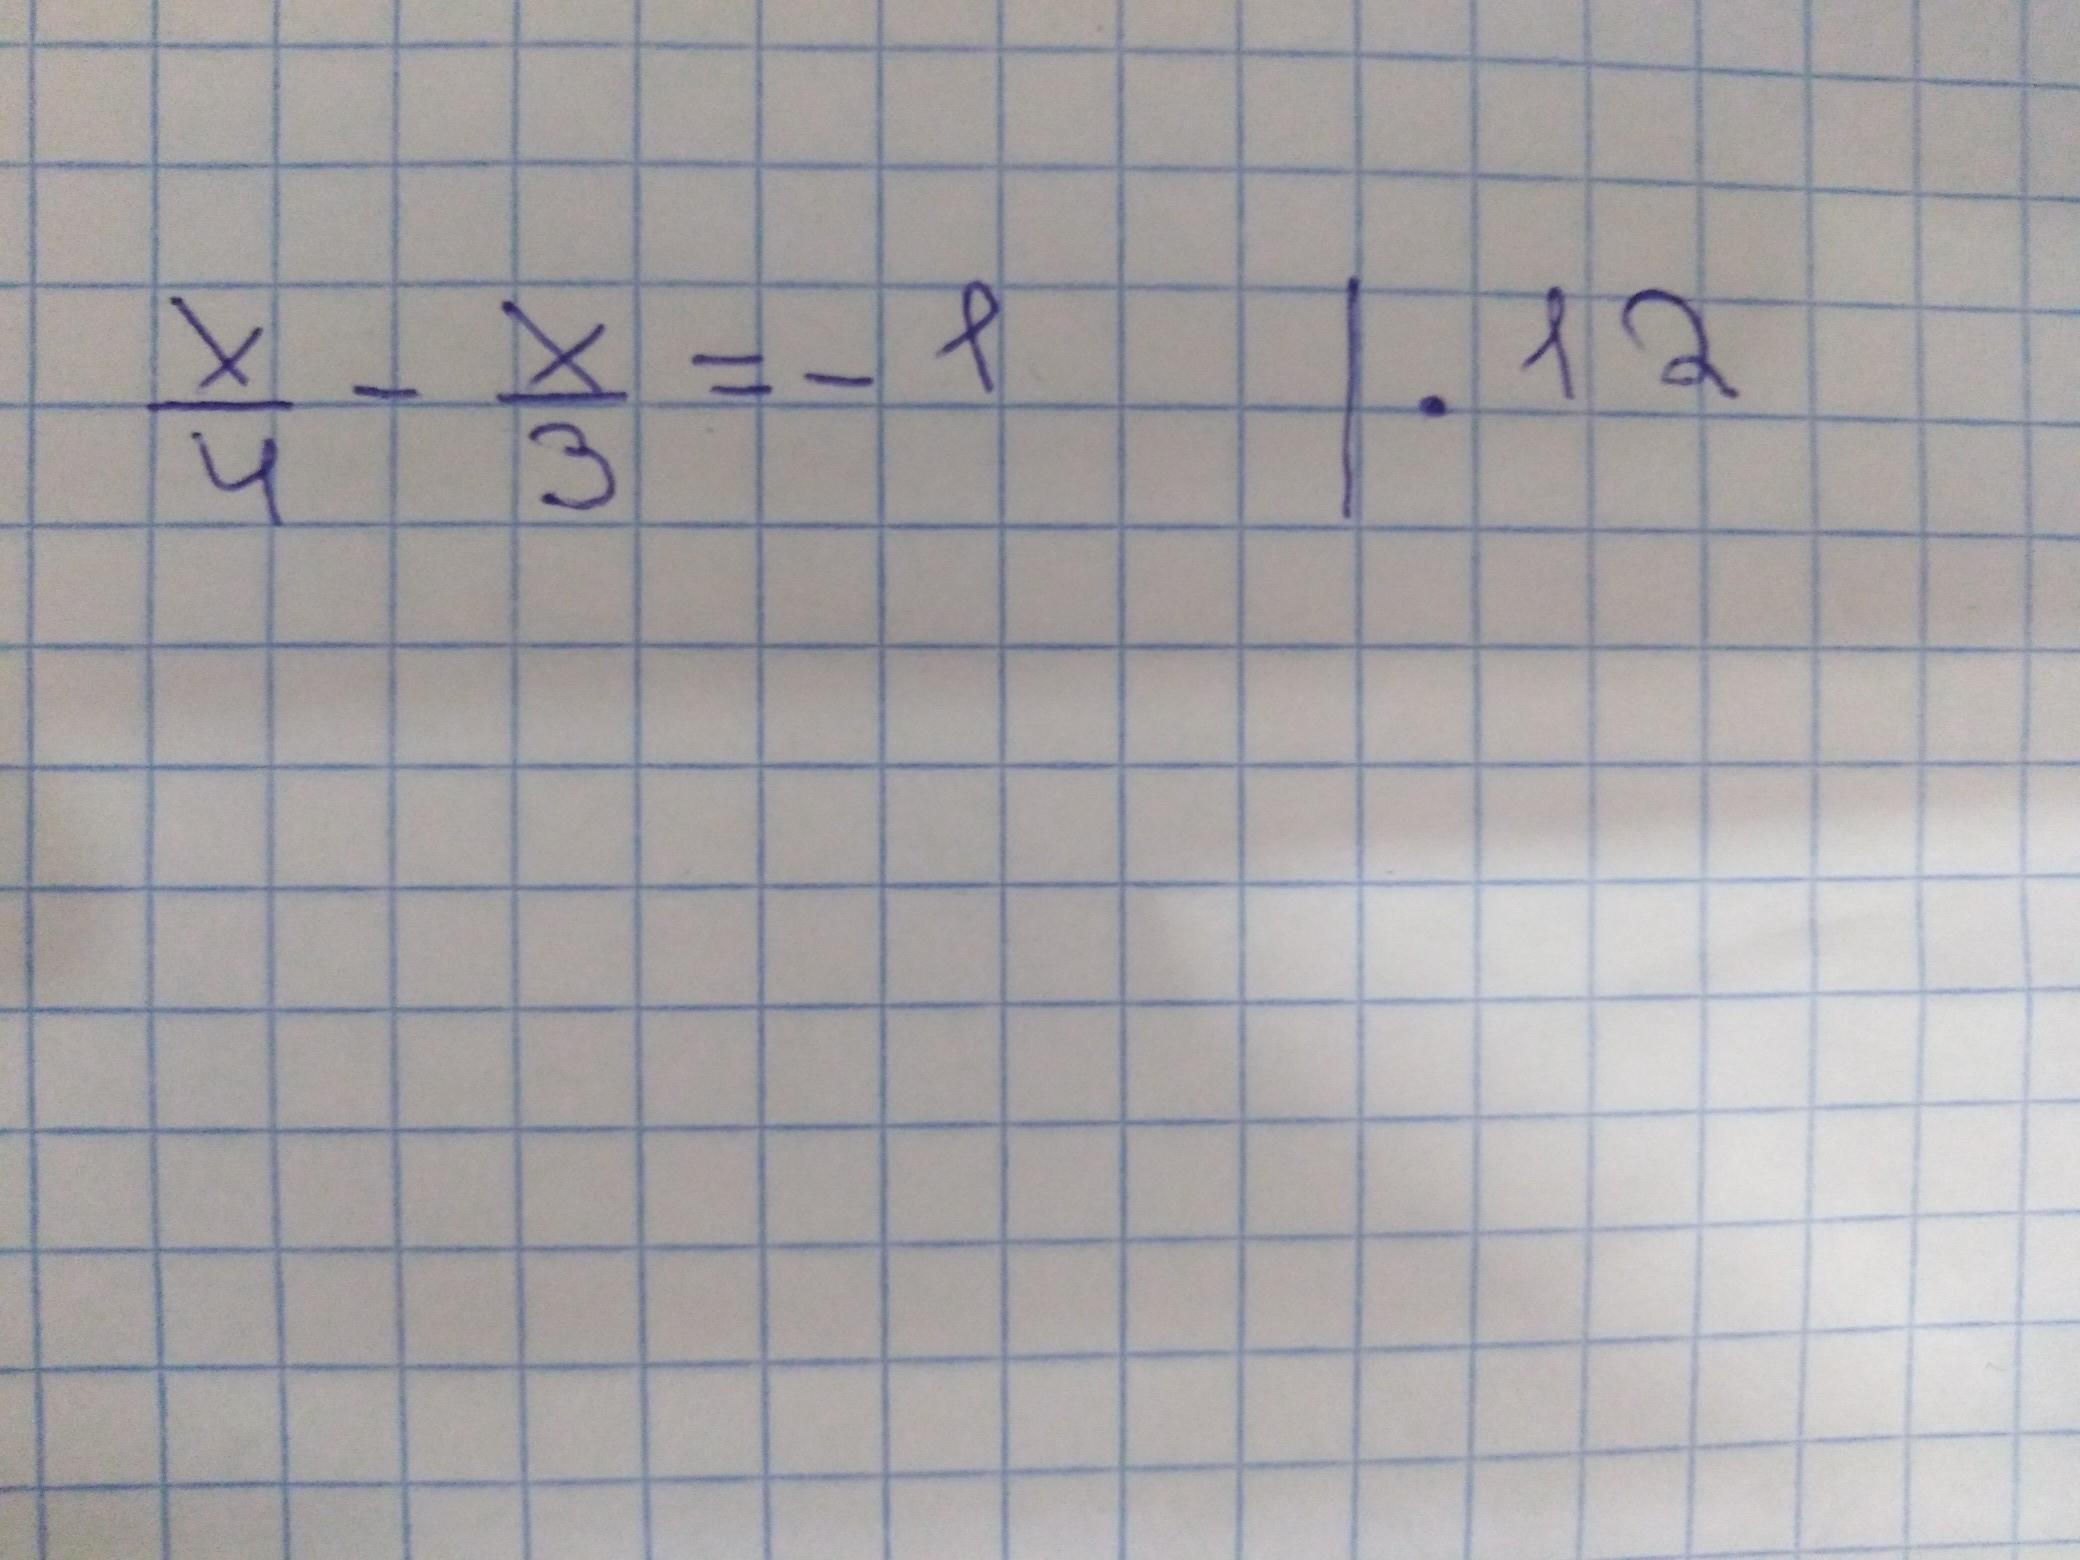 x/4 - x/3 = -1 | · 12